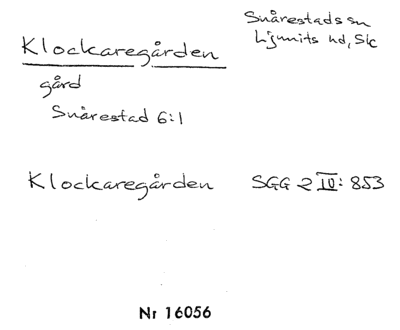 Klockaregården
Snårestads sn
Ljunits hd, Sk
gård
Snårestad 6:1
Klockaregården SGG 2 III: 853
Nr 16056